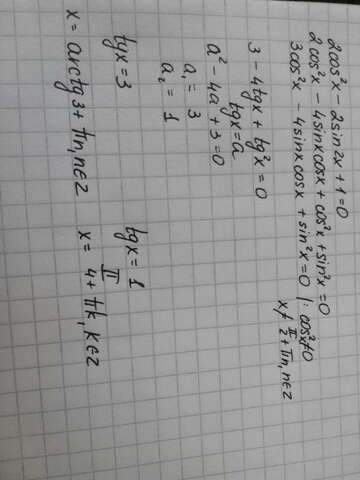 2cos²x - 2sin2x + 1 = 0
2cos²x - 4sinxcosx + cos²x + sin²x = 0
3cos²x - 4sinxcosx + sin²x = 0 | : cos²x≠0
x ≠ π/2 + πn, n∈z
3 - 4tgx + tg²x = 0
tgx = a
a² - 4a + 3 = 0
a₁ = 3
a₂ = 1
tgx = 3 tgx = 1
x = arctg3 + πn, n∈z x = π/4 + πk, k∈z